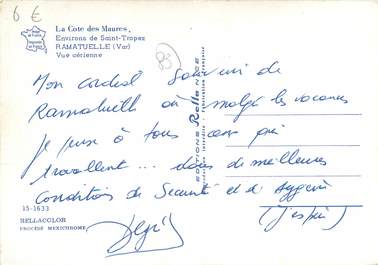 6 €
La Côte des Maures,
Environs de Saint-Tropez
RAMATUELLE (Var)
Vue aérienne
83
Mon cordial souvenir de
Ramatuelle où malgré les vacances
je pense à tous ceux qui
travaillent... dans de meilleures
Conditions de Sécurité et d'Hygiène
(J'espère)
EDITIONS Rella NICE
15-1633
RELLACOLOR
PROCÉDÉ MEXICHROME